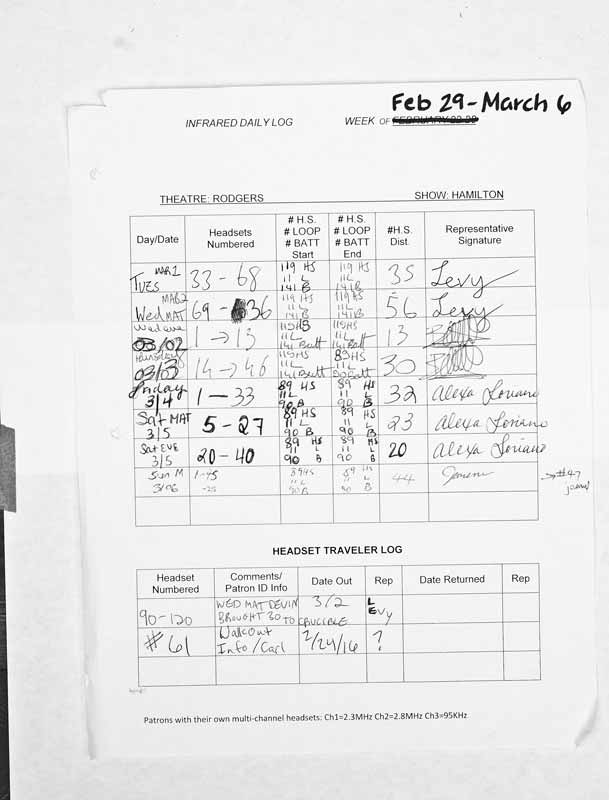 Feb 29-March 6
INFRARED DAILY LOG WEEK OF FEBRUARY 22-28
THEATRE: RODGERS SHOW: HAMILTON
Day/Date Headsets Numbered # H.S. # LOOP # BATT Start # H.S. # LOOP # BATT End #H.S. Dist. Representative Signature
TUES MAR1 33-68 119 HS 11 L 141 B 119 HS 11 L 141 B 35 Levy
Wed MAT MAR2 69-36 119 HS 11 L 141 B 119 HS 11 L 141 B 56 Levy
Wed eve 03/02 1→13 115HS 11L 141 Batt 115HS 11L 141 Batt 13
Thursday 03/03 14→46 115HS 11L 141 Batt 83HS 11L 90 Batt 30
Friday 3/4 1-33 89 HS 11 L 90 B 89 HS 11 L 90 B 32 Alexa Loriano
Sat MAT 3/5 5-27 89 HS 11 L 90 B 89 HS 11 L 90 B 23 Alexa Loriano
Sat EVE 3/5 20-40 89 HS 11 L 90 B 89 HS 11 L 90 B 20 Alexa Loriano
Sun M 3/06 1-45 -25 89HS 11 L 90 B 89 HS 11 L 90 B 44 →#47
HEADSET TRAVELER LOG
Headset Numbered Comments/ Patron ID Info Date Out Rep Date Returned Rep
90-120 WED MAT DEVIN BROUGHT 30 TO CRUCIBLE 3/2 Levy
#61 Walkout Info/Carl 2/24/16 ?
Patrons with their own multi-channel headsets: Ch1=2.3MHz Ch2=2.8MHz Ch3=95KHz